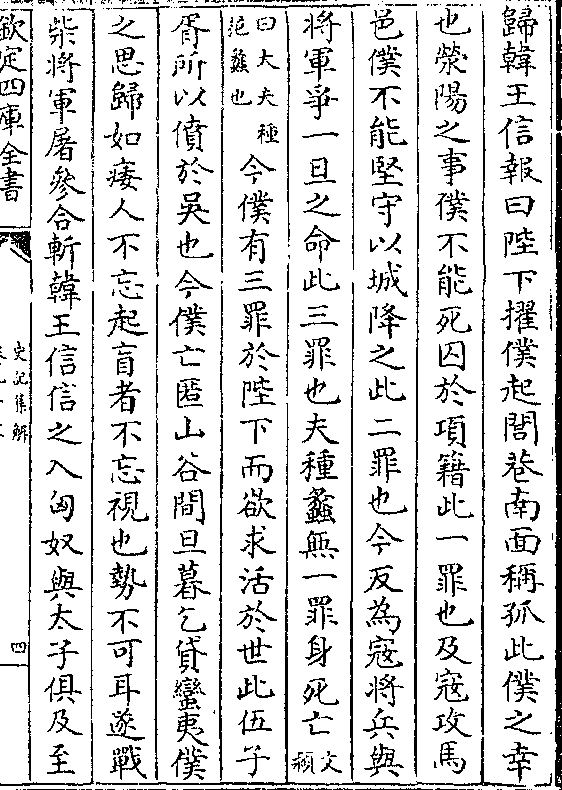 歸韓王信報曰陛下擢僕起閭巷南面稱孤此僕之幸
也滎陽之事僕不能死囚於項籍此一罪也及寇攻馬
邑僕不能堅守以城降之此二罪也今反為寇將兵與
將軍爭一旦之命此三罪也夫種蠡無一罪身死亡文穎
曰大夫種范蠡也今僕有三罪於陛下而欲求活於世此伍子
胥所以僨於吳也今僕亡匿山谷間旦暮乞貸蠻夷僕
之思歸如痿人不忘起盲者不忘視也勢不可耳遂戰
柴將軍屠參合斬韓王信信之入匈奴與太子俱及至
欽定四庫全書
史記集解
四